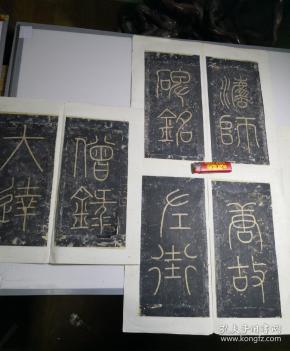 唐故
左街
僧錄
大達
灋師
碑銘
孔夫子旧书网